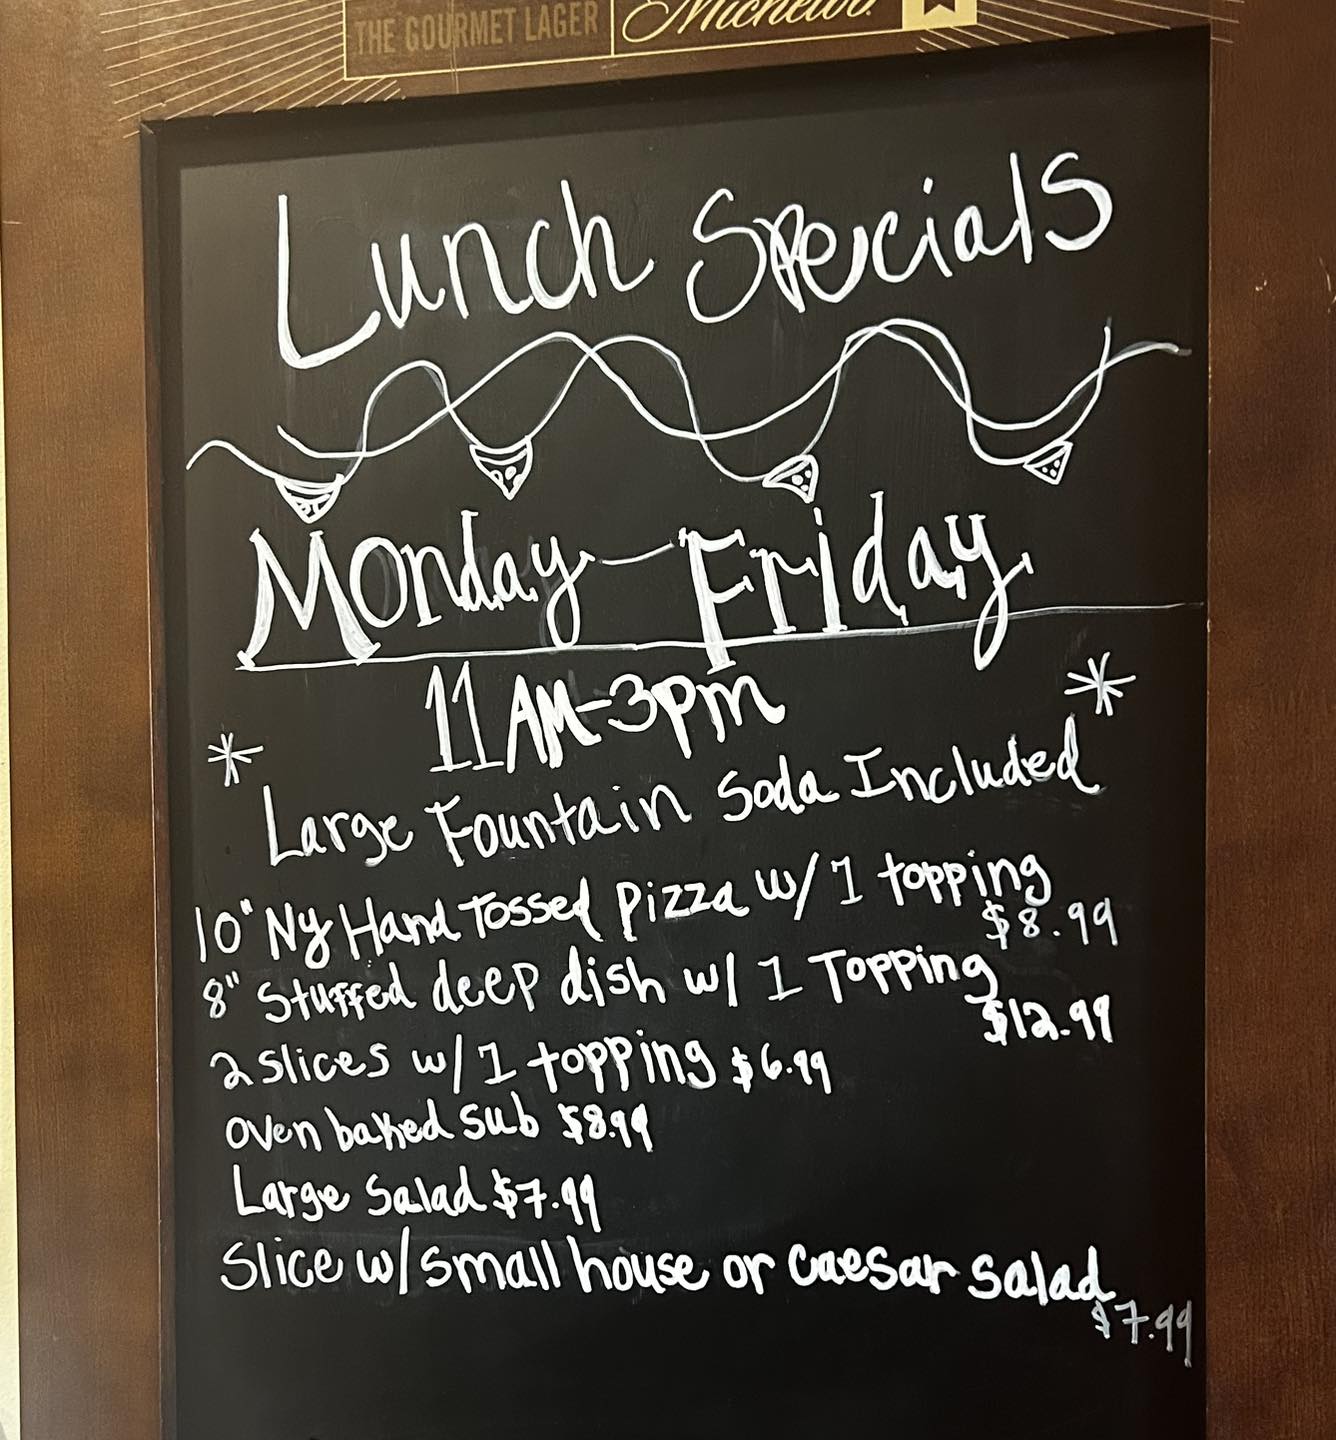 THE GOURMET LAGER Michelob.
Lunch Specials
Monday-Friday
11AM-3pm
* Large Fountain Soda Included *
10" NY Hand Tossed pizza w/ 1 topping
$8.99
8" Stuffed deep dish w/ 1 Topping
$12.99
2 slices w/ 1 topping $6.99
oven baked sub $8.99
Large Salad $7.99
Slice w/ small house or caesar salad
$7.99